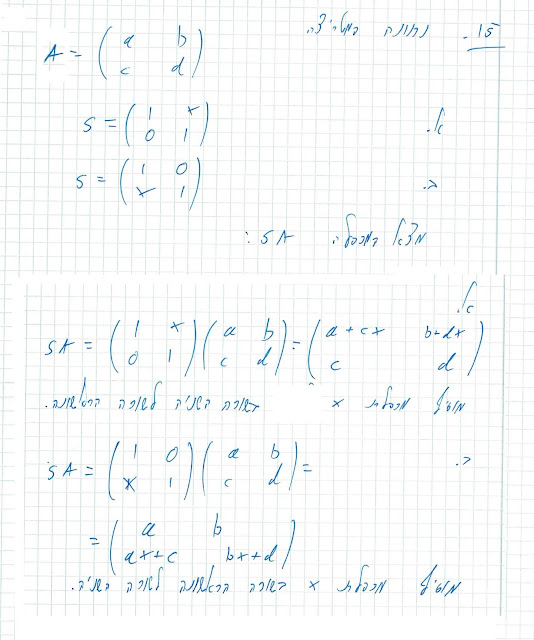 15. נתונה המטריצה
A = ( a b
c d )
א. S = ( 1 x
0 1 )
ב. S = ( 1 0
x 1 )
מצא המכפלה SA :
א.
SA = ( 1 x
0 1 ) ( a b
c d ) = ( a + cx b+dx
c d )
מוסיף מכפלת x בשורה השניה לשורה הראשונה.
ב. SA = ( 1 0
x 1 ) ( a b
c d ) =
= ( a b
ax+c bx+d )
מוסיף מכפלת x בשורה הראשונה לשורה השניה.